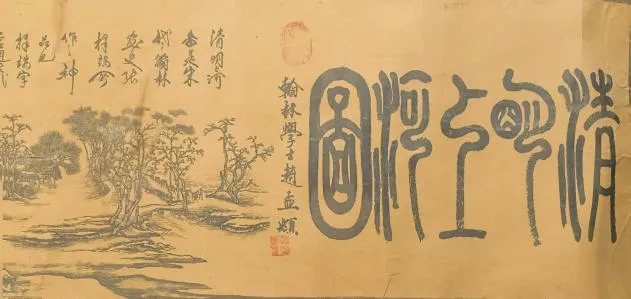 清明上河圖
翰林學士趙孟頫
清明河
是宋
代翰林
畫史張
擇端所
作神
品也
擇端字